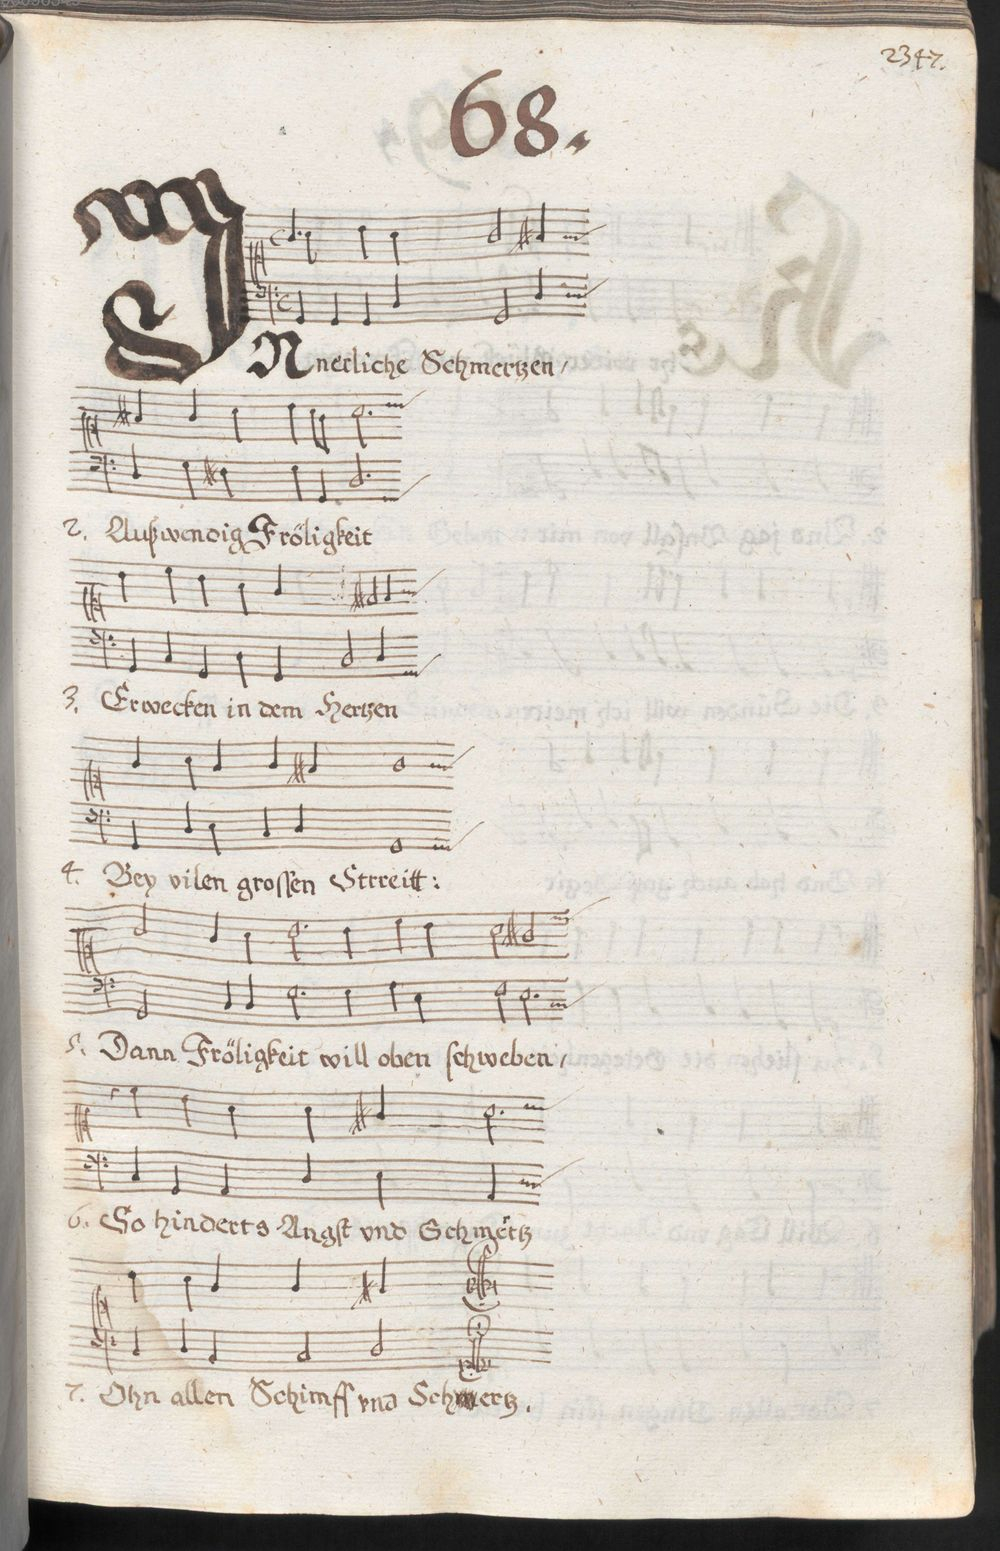 2347.
68.
INnerliche Schmertzen,
2. Außwendig Fröligkeit
3. Erwecken in dem Hertzen
4. Bey vilen grossen Strreitt:
5. Dann Fröligkeit will oben schweben,
6. So hinderts Angst vnd Schmertz
7. Ohn allen Schimff vnd Schmertz.